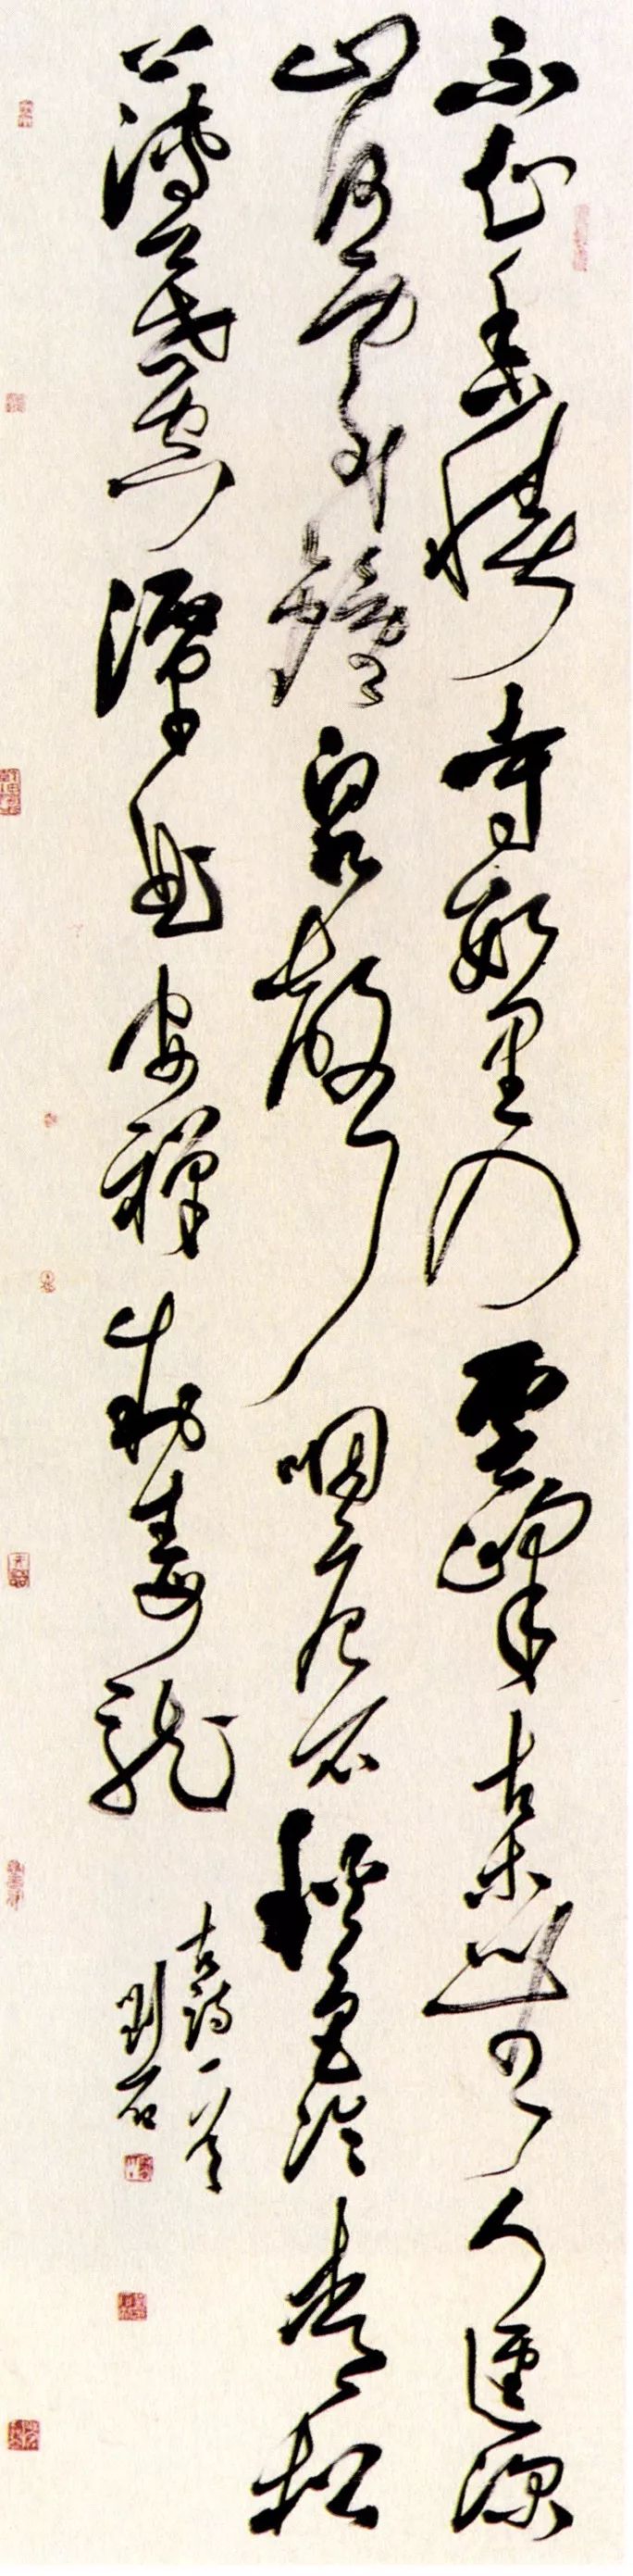 不知香積寺數里入雲峰古木無人徑深
山何處鐘泉聲咽危石色冷青松
薄暮空潭曲安禪制毒龍
古詩一首
劉石